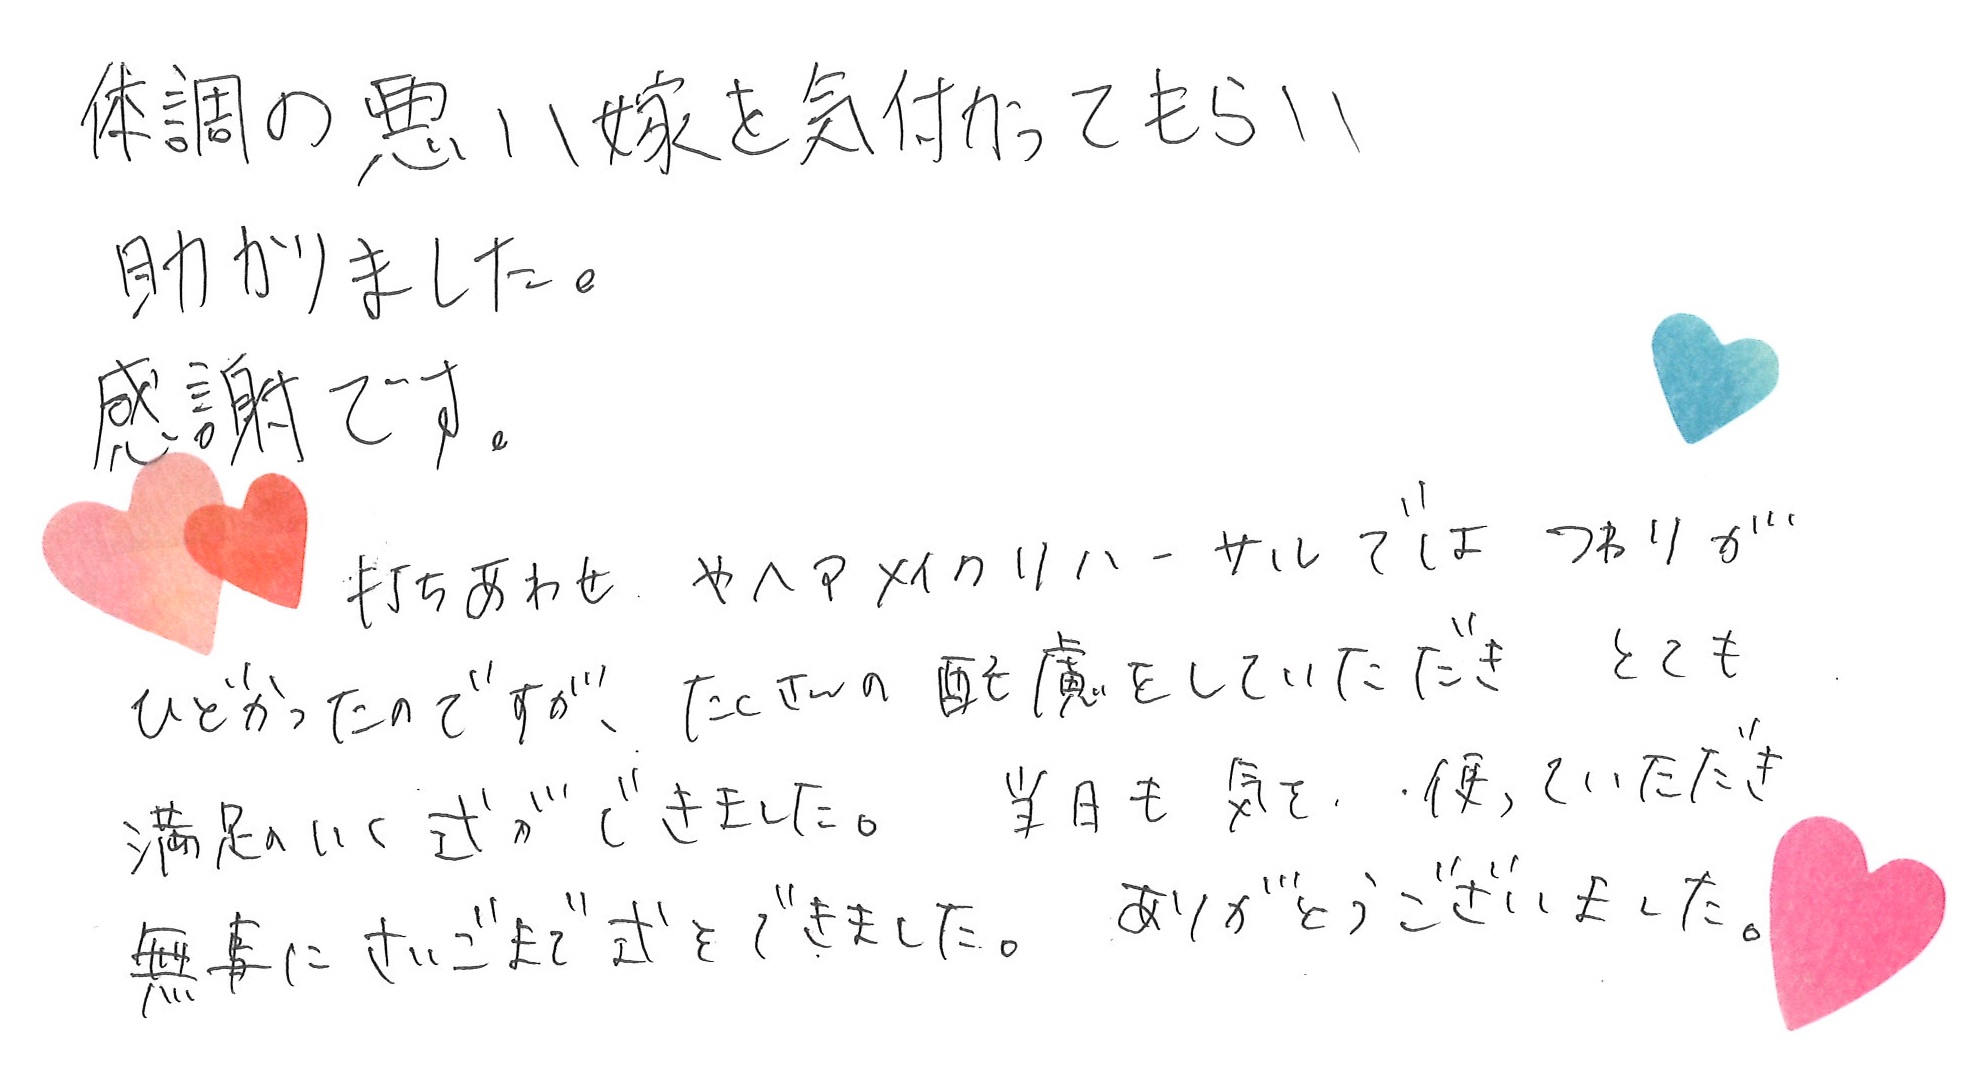 体調の悪い嫁を気付かってもらい
助かりました。
感謝です。
打ちあわせやヘアメイクリハーサルではつわりが
ひどかったのですが、たくさんの配慮をしていただき とても
満足のいく式ができました。 当日も気を使っていただき
無事にさいごまで式をできました。 ありがとうございました。